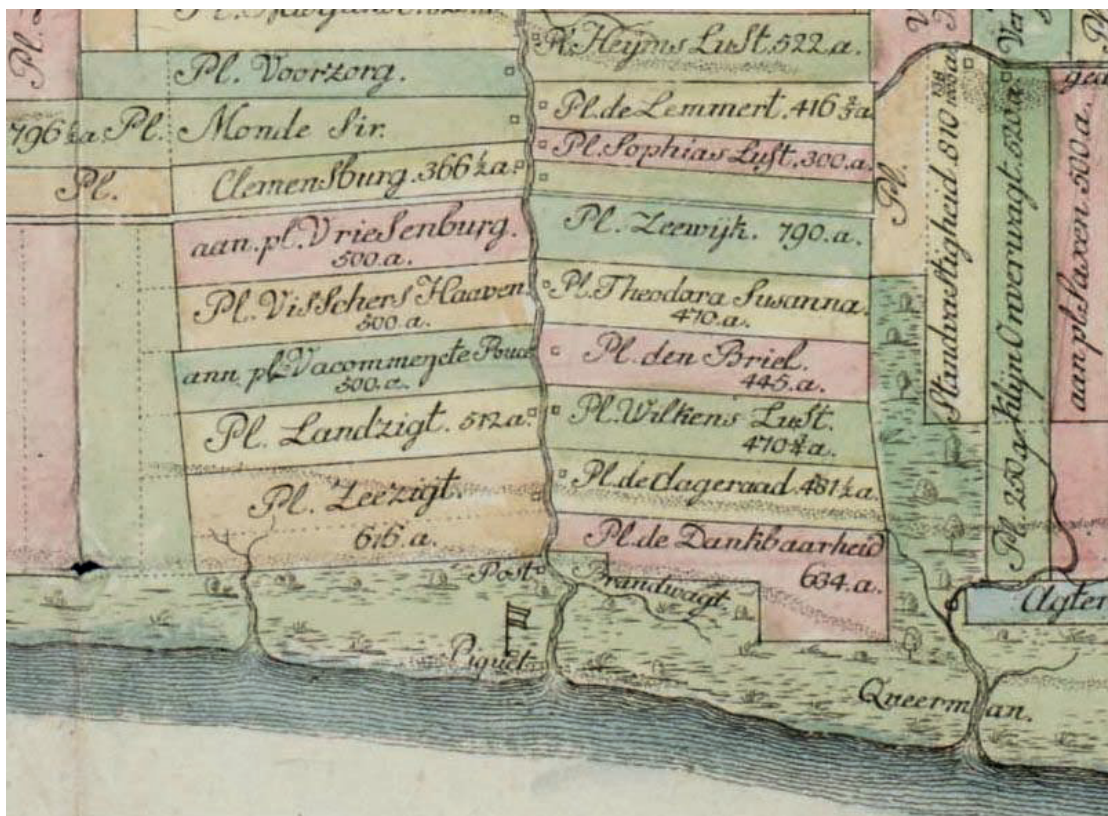 Pl.
Pl. Voorzorg.
796½a. Pl. Monde Sir.
Pl.
Clemensburg. 366½a.
aan. pl. Vriesenburg.
500.a.
Pl. Visschers Haaven
500.a.
ann. pl. Vacommeejte Pouce
500.a.
Pl. Landzigt. 512a.
Pl. Zeezigt.
616.a.
Pl. Heyms Lust. 522.a.
Pl. de Lemmert. 416⅔a
Pl. Sophias Lust. 300.a.
Pl. Zeewijk. 790.a.
Pl. Theodora Susanna.
470.a.
Pl. den Briel.
445.a.
Pl. Wilkens Lust.
470¾a.
Pl. de dageraad. 481½a.
Pl. de Dankbaarheid
634.a.
Post
Brandwagt.
Piquet
Pl.
Standvastigheid. 810
Pl. 250 a
Klijn Onverwagt. 520.a.
aan pl. Saxen. 500.a.
Agter
Qveerman.